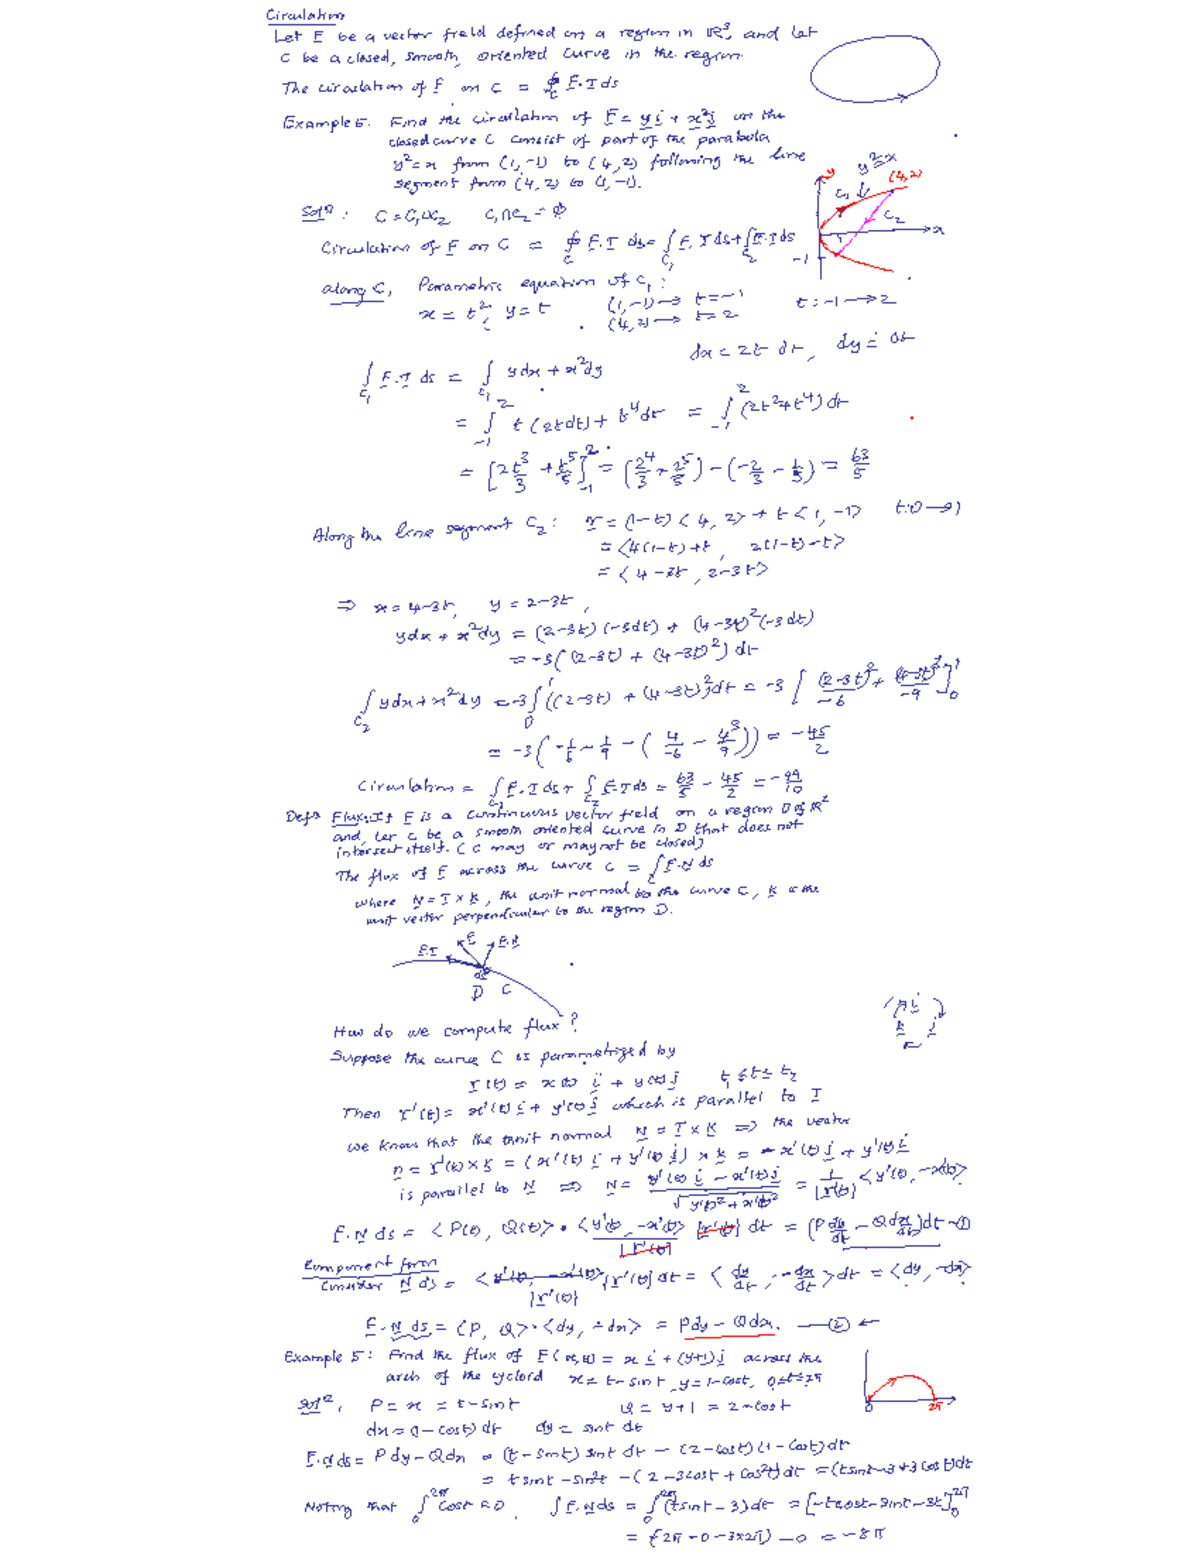 Circulation
Let F be a vector field defined on a region in ℝ³, and let
C be a closed, smooth, oriented curve in the region.
The circulation of F on C = ∮_C F·T ds
Example 5. Find the circulation of F = y i + x² j on the
closed curve C consist of part of the parabola
y² = x from (1,-1) to (4,2) following the line
segment from (4,2) to (1,-1).
y
y²=x
(4,2)
C₁
C₂
1
x
-1
Solⁿ: C = C₁∪C₂ C₁∩C₂ = ∅
Circulation of F on C = ∮_C F·T ds = ∫_C₁ F·T ds + ∫_C₂ F·T ds
along C₁ Parametric equation of C₁:
x = t², y = t (1,-1) → t = -1 t: -1 → 2
(4,2) → t = 2
dx = 2t dt, dy = dt
∫_C₁ F·T ds = ∫_C₁ y dx + x² dy
= ∫_{-1}^{2} t(2t dt) + t⁴ dt = ∫_{-1}^{2} (2t² + t⁴) dt
= [2t³/3 + t⁵/5]_{-1}^{2} = (2⁴/3 + 2⁵/5) - (-2/3 - 1/5) = 63/5
Along the line segment C₂: r = (1-t)<4, 2> + t<1, -1> t: 0 → 1
= <4(1-t)+t, 2(1-t)-t>
= <4-3t, 2-3t>
⇒ x = 4-3t, y = 2-3t,
ydx + x²dy = (2-3t)(-3dt) + (4-3t)²(-3dt)
= -3((2-3t) + (4-3t)²) dt
∫_C₂ ydx + x²dy = -3∫_0^1 ((2-3t) + (4-3t)²) dt = -3 [(2-3t)²/-6 + (4-3t)³/-9]_0^1
= -3(-1/6 - 1/9 - (4/-6 - 4³/9)) = -45/2
Circulation = ∫_C₁ F·T ds + ∫_C₂ F·T ds = 63/5 - 45/2 = -99/10
Defⁿ Flux: If F is a continuous vector field on a region D of ℝ²
and, Let C be a smooth oriented curve in D that does not
intersect itself. (C may or may not be closed)
The flux of F across the curve C = ∫_C F·N ds
where N = T × k, the unit normal to the curve C, k is the
unit vector perpendicular to the region D.
F·T
F
F·N
D C
How do we compute flux?
i
k j
Suppose the curve C is parametrized by
r(t) = x(t) i + y(t) j t₁ ≤ t ≤ t₂
Then r'(t) = x'(t) i + y'(t) j which is parallel to T
we know that the unit normal N = T × k ⇒ the vector
n = r'(t) × k = (x'(t) i + y'(t) j) × k = -x'(t) j + y'(t) i
is parallel to N ⇒ N = (y'(t) i - x'(t) j)/√(y'(t)² + x'(t)²) = 1/|r'(t)| <y'(t), -x'(t)>
F·N ds = <P(t), Q(t)> · <y'(t), -x'(t)>/|r'(t)| |r'(t)| dt = (P dy/dt - Q dx/dt) dt —①
Component form
Consider N ds = <y'(t), -x'(t)>/|r'(t)| |r'(t)| dt = <dy/dt, -dx/dt> dt = <dy, -dx>
F·N ds = <P, Q>·<dy, -dx> = Pdy - Qdx. —② ←
Example 5: Find the flux of F(x,y) = x i + (y+1) j across the
arch of the cycloid x = t - sint, y = 1-cost, 0≤t≤2π
0 2π
Solⁿ, P = x = t - sint Q = y+1 = 2-cost
dx = (1-cost) dt dy = sint dt
F·N ds = Pdy - Qdx = (t-sint) sint dt - (2-cost)(1-cost) dt
= t sint - sin²t - (2-3cost + cos²t) dt = (t sint - 3 + 3cost) dt
Noting that ∫_0^{2π} cost = 0. ∫ F·N ds = ∫_0^{2π} (t sint - 3) dt = [-t cost - sint - 3t]_0^{2π}
= (-2π - 0 - 3×2π) - 0 = -8π